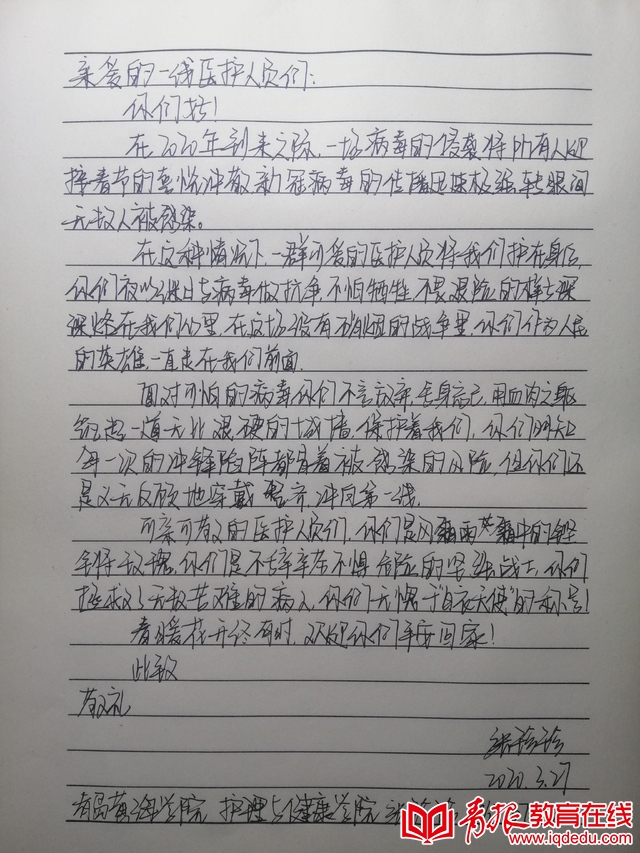 亲爱的一线医护人员们:
你们好!
在2020年到来之际,一场病毒的侵袭将所有人迎
接春节的喜悦冲散,新冠病毒的传播迅速极强,转眼间
无数人被感染。
在这种情况下,一群可爱的医护人员将我们护在身后,
你们夜以继日与病毒做抗争,不怕牺牲,不畏艰险的精神深
深烙在我们心里,在这场没有硝烟的战争里,你们作为人民
的英雄,一直走在我们前面.
面对可怕的病毒你们不言放弃,舍身忘己,用血肉之躯
筑起一道无比艰硬的城墙,保护着我们,你们明知
每一次的冲锋险阵都冒着被感染的风险,但你们还
是义无反顾地穿戴 齐冲向第一线.
可亲可敬的医护人员们,你们是风霜雨 中的
你们是不辞辛苦不惧危险的坚强战士,你们
拯救了无数苦难的病人,你们无愧于"白衣天使"的称号!
春暖花开终有时,欢迎你们平安回家!
此致
敬礼
2020.3.27
青岛黄海学院 护理与健康学院
青报教育在线
www.iqdedu.com